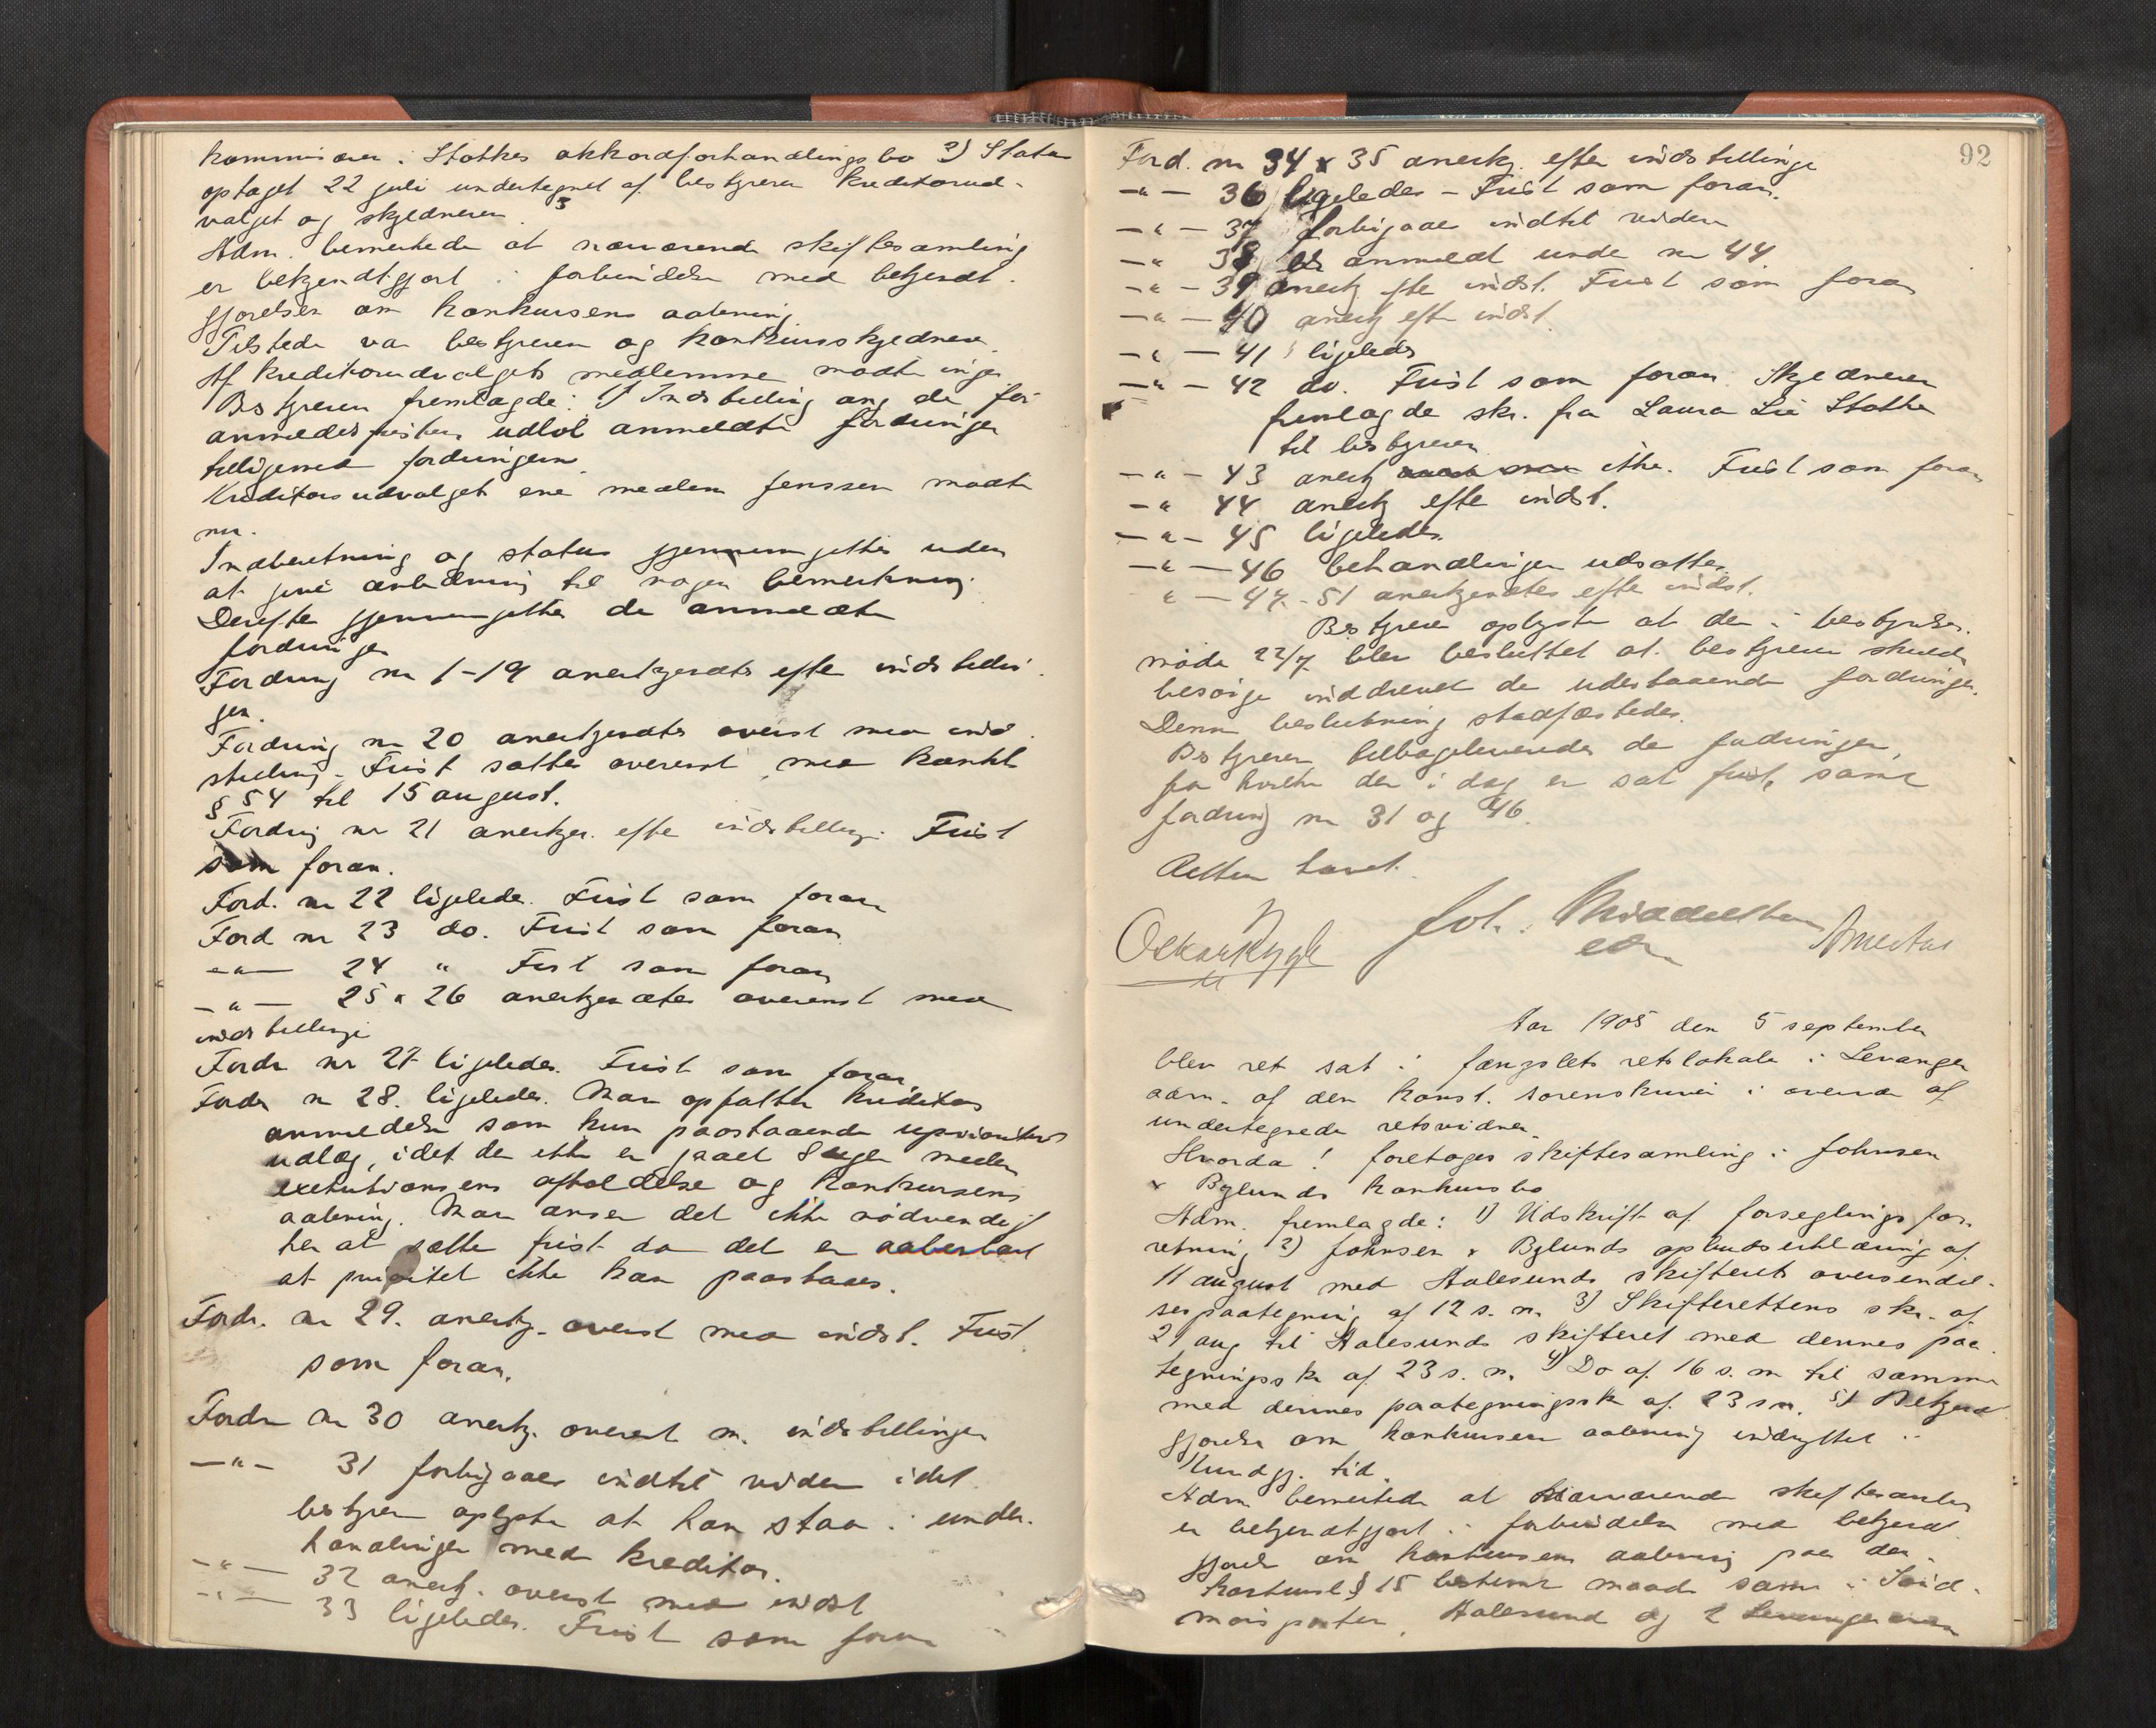 kommissær i Stokkes akkordforhandlingsbo 2) Status
optaget 22 juli undertegnet af bestyreren kreditorud-
valget og skyldneren.
Adm. bemerkede at nærværende skiftesamling
er bekjendtgjort i forbindelse med bekjendt-
gjørelsen om konkursens aabning
Tilstede var bestyreren og konkursskyldneren.
Af kreditorudvalgets medlemmer mødte ingen
Bestyreren fremlagde: 1) Indstilling ang de før
anmeldelsesfristens udløb anmeldte fordringer
tilligemed fordringerne.
Kreditorudvalgets ene medlem Jenssen mødte
nu.
Indberetning og status gjennemgikkes uden
at give anledning til nogen bemerkning.
Derefter gjennemgikkes de anmeldte
fordringer
Fordring nr 1-19 anerkjendtes efter indstillin-
gen.
Fordring nr 20 anerkjendtes overst med ind-
stilling. Frist sattes overenst med konkl
§ 54 til 15 august.
Fordring nr 21 anerkjen. efter indstilling. Frist
som foran.
Ford. nr 22 ligeledes. Frist som foran
Ford nr 23 do. Frist som foran
—"— 24 " Frist som foran
—"— 25 & 26 anerkjendtes overenst med
indstillingen
Fordr nr 27 ligeledes. Frist som foran
Fordr nr 28. ligeledes. Man opfatter kreditors
anmeldelse som kun paastaaende uprioriteret
udlæg, idet der ikke er gaaet 8 uger mellem
exekutionens afholdelse og konkursens
aabning. Man anser det ikke nødvendigt
her at sætte frist da det er aabenbart
at prioritet ikke kan paastaaes.
Fordr. nr 29. anerkj. overst med indst. Frist
som foran.
Fordr nr 30 anerkj. overenst m. indstillingen
—"— 31 forbigaaes indtil viden idet
bestyreren oplyste at han staar i under-
handlinger med kreditor.
—"— 32 anerkj. overst med indst
—"— 33 ligeledes. Frist som foran
92
Ford. nr 34 & 35 anerkj. efter indstillingen
—"— 36 ligeledes - Frist som foran.
—"— 37 forbigaaes indtil videre
—" 38 er anmeldt under nr 44
—"— 39 anerkj efter indst. Frist som foran
—"— 40 anerkj efter indst.
—"— 41 ligeledes
—"— 42 do. Frist som foran. Skyldneren
fremlagde skr. fra Laura Lie Stokke
til bestyreren
—"— 43 anerkj ikke. Frist som foran
—" 44 anerkj efter indst.
—"— 45 ligeledes.
—"— 46 behandlingen udsattes.
" — 47-51 anerkjendtes efter indst.
Bestyreren oplyste at der i bestyrelses-
møde 22/7 blev besluttet at bestyreren skulde
besørge inddrevet de udestaaende fordringer.
Denne beslutning stadfæstedes.
Bestyreren tilbageleveredes de fordringer,
for hvilke der i dag er sat frist, samt
fordring nr 31 og 46.
Retten hævet.
Oskar Rygh Joh. Middelthon
Aar 1905 den 5 september
blev ret sat i fængslets retslokale i Levanger
adm. af den konst. sorenskriver i overvær af
undertegnede retsvidner.
Hvorda! foretoges skiftesamling i Johnsen
& Bylunds konkursbo
Adm. fremlagde: 1) Udskrift af forseglingsfor-
retning 2) Johnsen & Bylunds opbudserklæring af
11 august med Aalesunds skifterets oversendel-
sespaategning af 12 s. m. 3) Skifterettens skr. af
21 aug til Aalesunds skifteret med dennes paa-
tegningsskr af 23 s. m. 4) Do af 16 s. m til samme
med dennes paategningsskr af 23 s m. 5) Bekjendt-
gjørelse om konkursens aabning indrykket i
Kundgj. tid.
Adm bemerkede at nærværende skiftesamling
er bekjendtgjort i forbindelse med bekjendt-
gjørelse om konkursens aabning paa den i
konkursl § 15 bestemte maade samt i Sønd-
mørsposten, Aalesund og 2 Levangeraviser